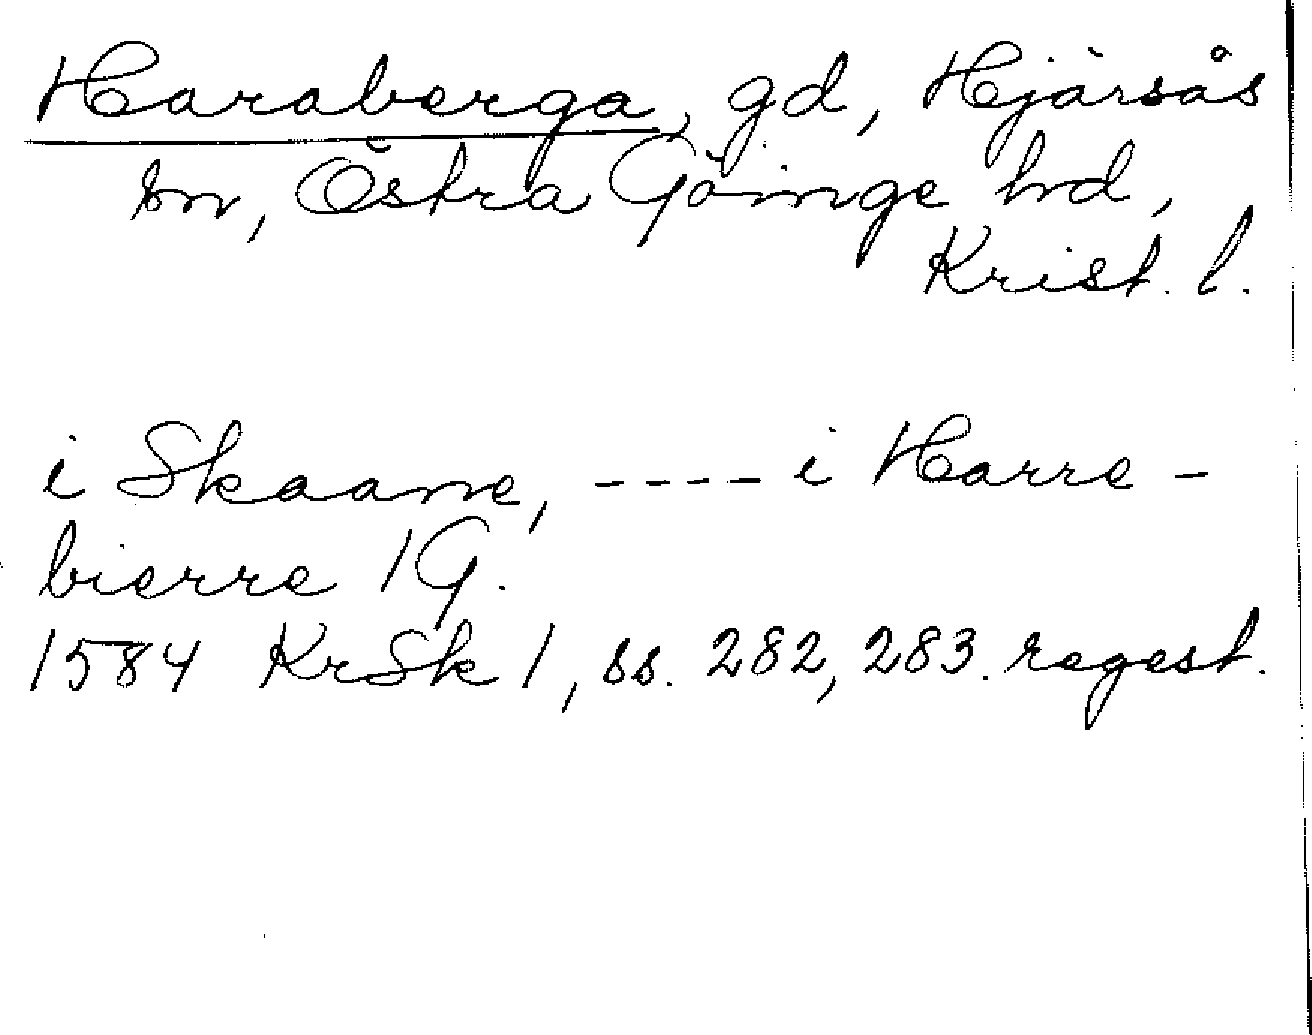 Haraberga, gd, Hjärsås
sn, Östra Göinge hd,
Krist. l.
i Skaane, ---- i Harre-
bierre 1 G.
1584 KrSk 1, ss. 282, 283. regest.